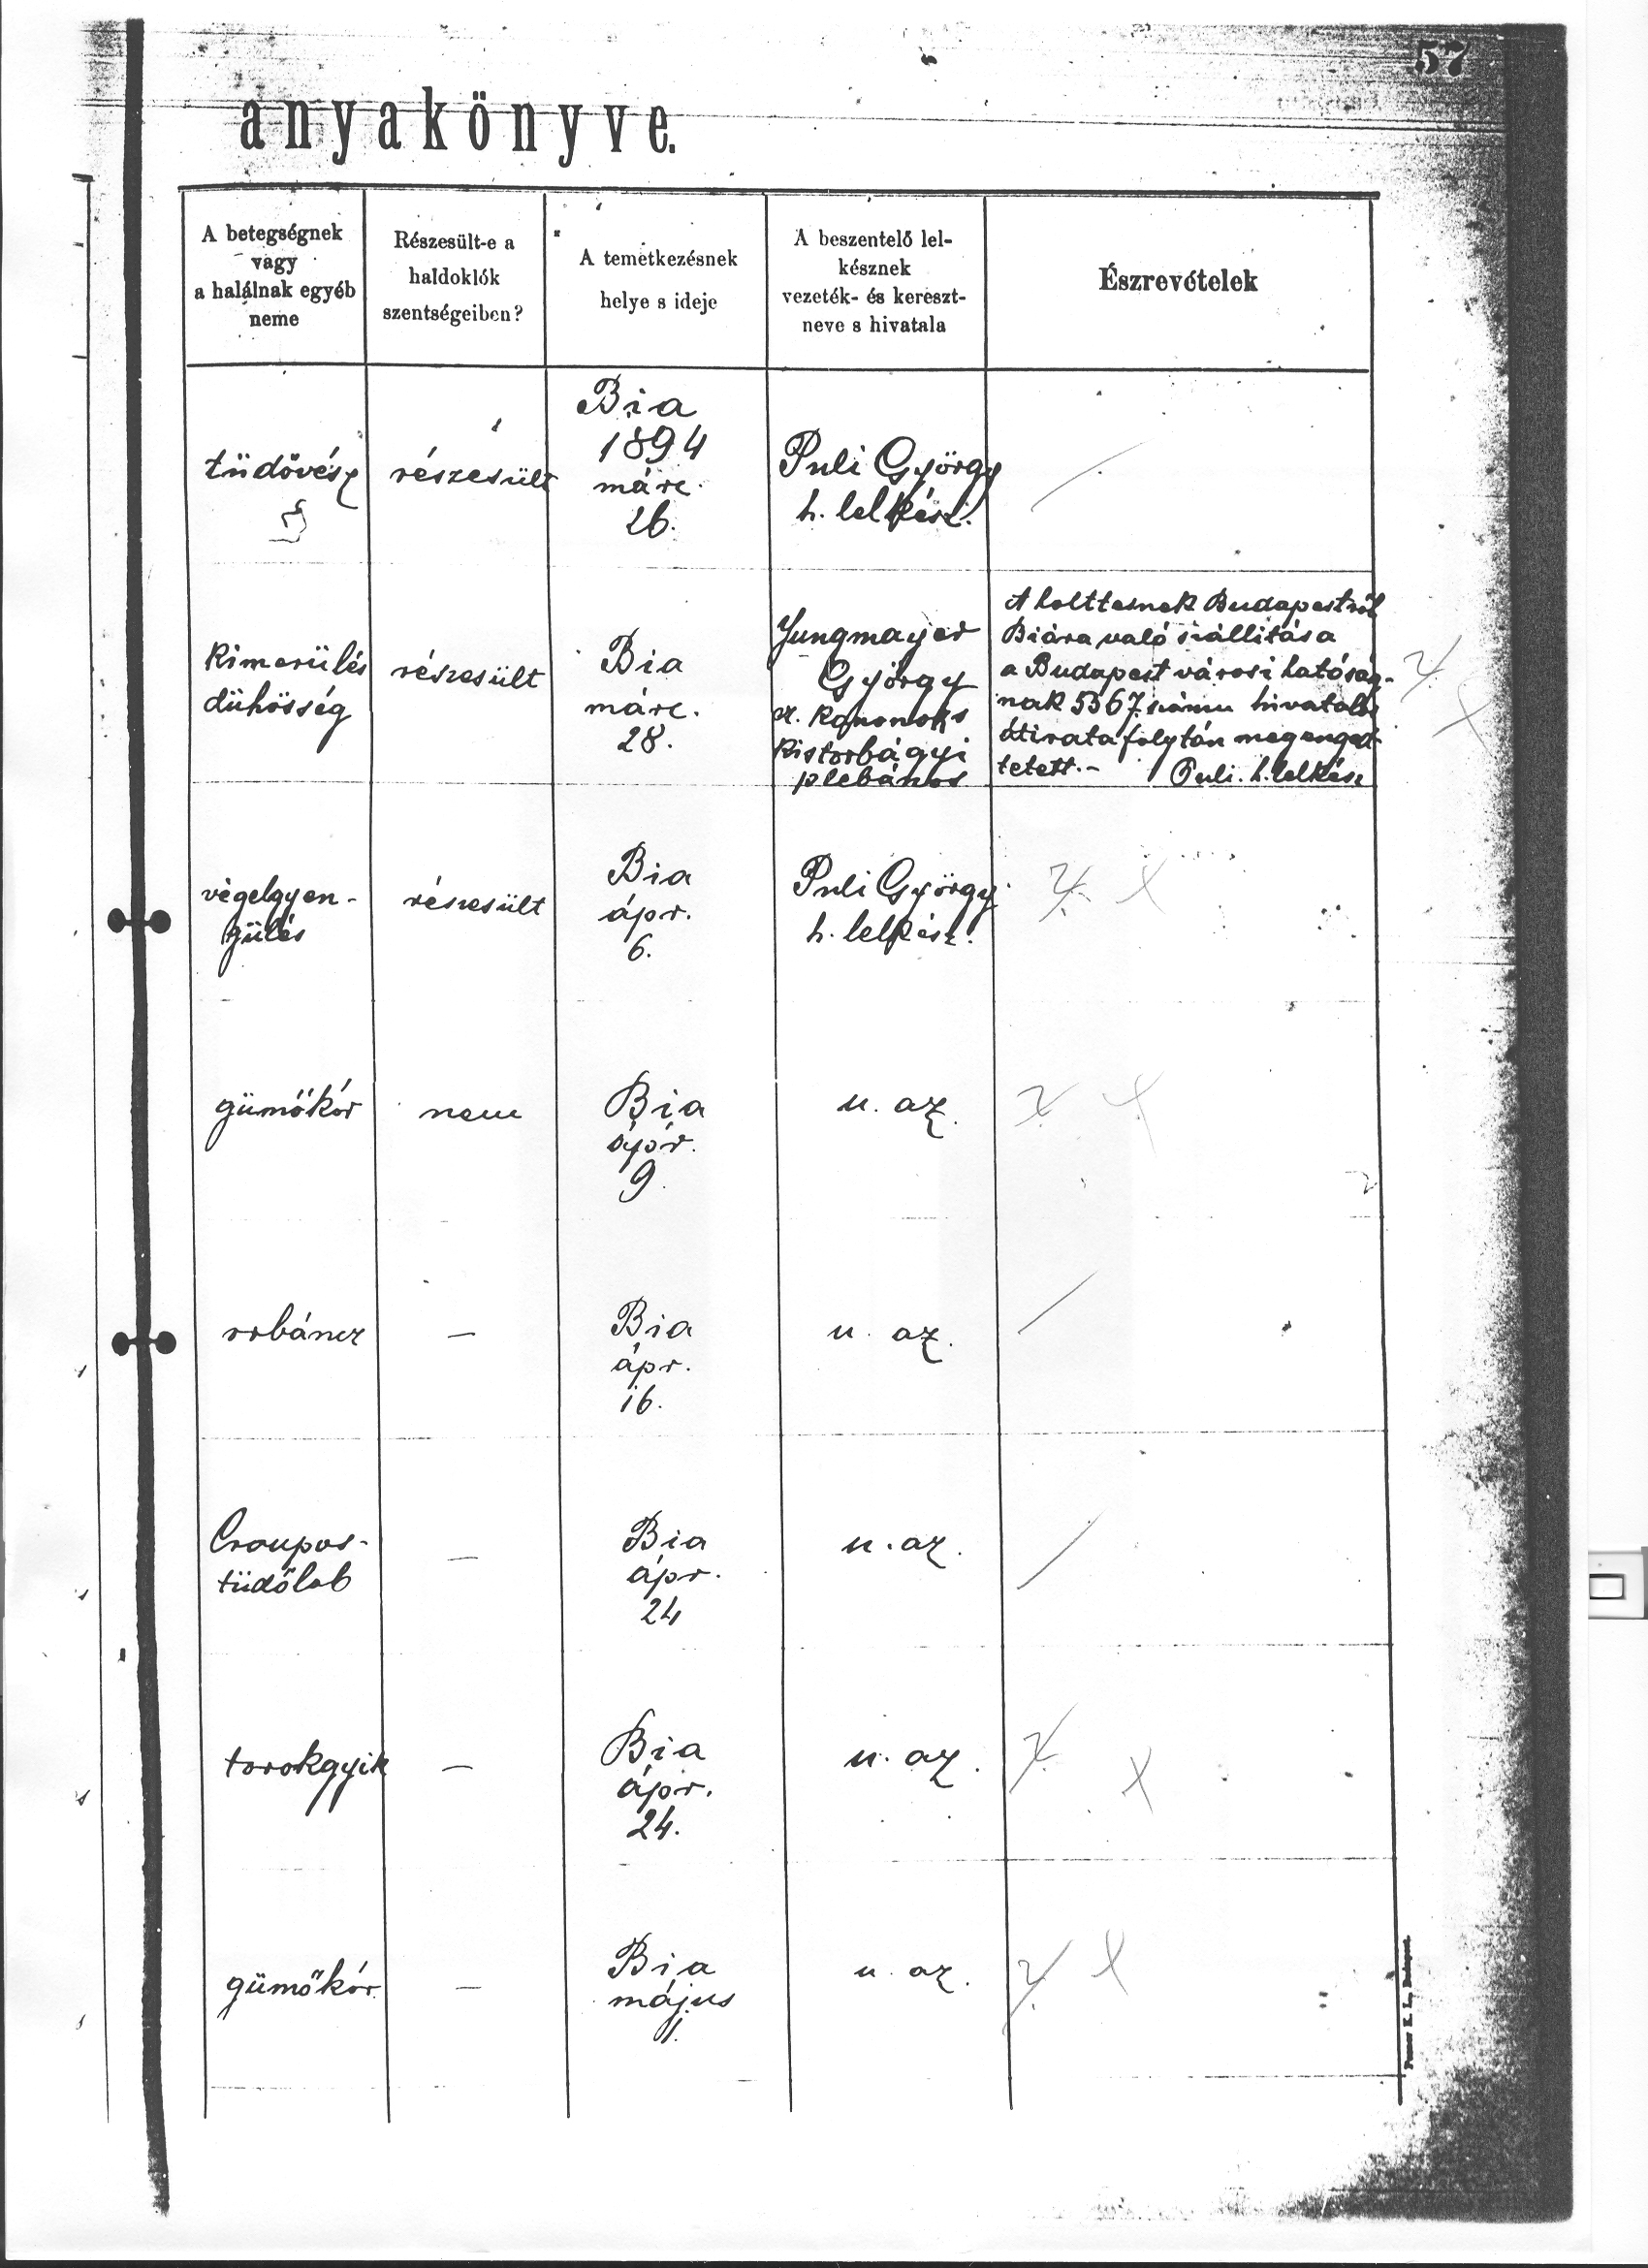 57
anyakönyve.
A betegségnek
vagy
a halálnak egyéb
neme
Részesült-e a
haldoklók
szentségeiben?
A temetkezésnek
helye s ideje
A beszentelő lel-
késznek
vezeték- és kereszt-
neve s hivatala
Észrevételek
tüdővész
részesült
Bia
1894
márc.
26.
Puli György
h. lelkész.
Kimerülés
dühösség
részesült
Bia
márc.
28.
Jungmayer
György
cz. kanonok s
Kistorbágyi
plebános
A holttesnek Budapestről
Biára való szállitása
a Budapest városi hatóság-
nak 5567. számu hivatalos
átirata folytán megenged-
tetett.- Puli. h. lelkész
végelgyen-
gülés
részesült
Bia
ápr.
6.
Puli György
h. lelkész.
gümőkór
nem
Bia
ápr.
9.
u. az.
orbáncz
—
Bia
ápr.
16.
u. az.
Croupos-
tüdőlob
—
Bia
ápr.
24
u. az.
torokgyik
—
Bia
ápr.
24.
u. az.
gümőkór
—
Bia
május
1.
u. az.